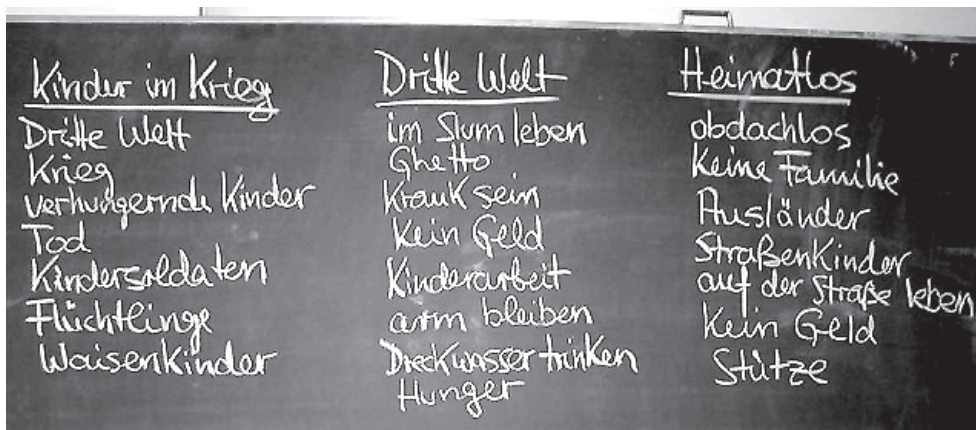 Kinder im Krieg
Dritte Welt
Krieg
verhungernde Kinder
Tod
Kindersoldaten
Flüchtlinge
Waisenkinder
Dritte Welt
im Slum leben
Ghetto
Krank sein
Kein Geld
Kinderarbeit
arm bleiben
Dreckwasser trinken
Hunger
Heimatlos
obdachlos
Keine Familie
Ausländer
Straßenkinder
auf der Straße leben
Kein Geld
Stütze